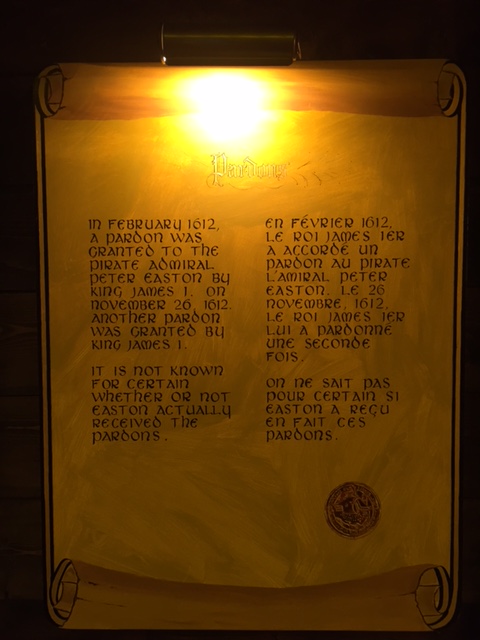 Pardons
IN FEBRUARY 1612,
A PARDON WAS
GRANTED TO THE
PIRATE ADMIRAL
PETER EASTON BY
KING JAMES I. ON
NOVEMBER 26, 1612.
ANOTHER PARDON
WAS GRANTED BY
KING JAMES I.
IT IS NOT KNOWN
FOR CERTAIN
WHETHER OR NOT
EASTON ACTUALLY
RECEIVED THE
PARDONS.
EN FÉVRIER 1612,
LE ROI JAMES IER
A ACCORDÉ UN
PARDON AU PIRATE
L'AMIRAL PETER
EASTON. LE 26
NOVEMBRE, 1612,
LE ROI JAMES IER
LUI A PARDONNÉ
UNE SECONDE
FOIS.
ON NE SAIT PAS
POUR CERTAIN SI
EASTON A REÇU
EN FAIT CES
PARDONS.